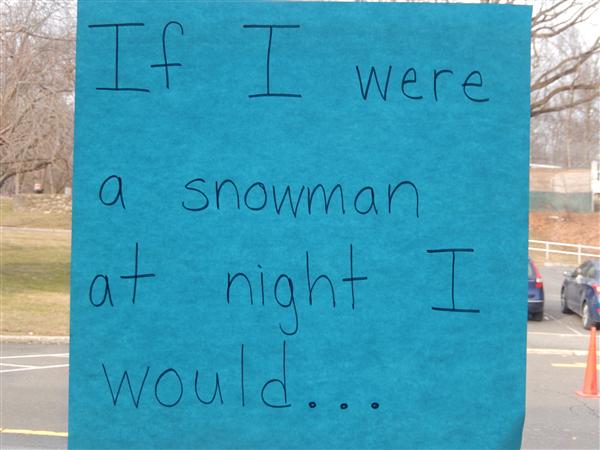 If I were
a snowman
at night I
would...